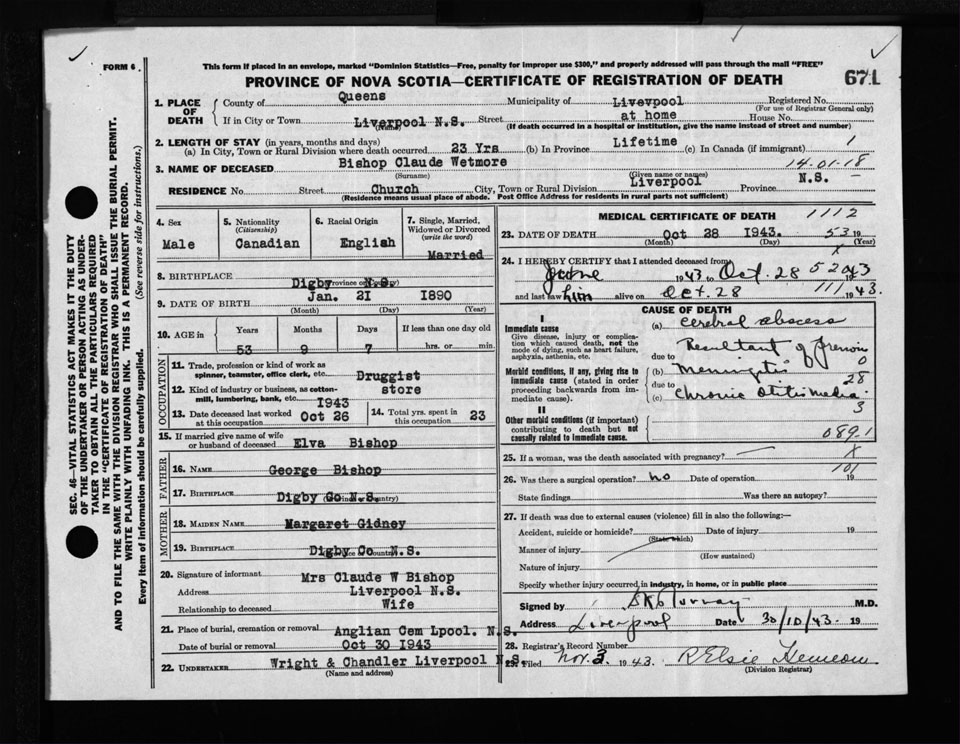 FORM 6
This form if placed in an envelope, marked "Dominion Statistics—Free, penalty for improper use $300," and properly addressed will pass through the mail "FREE"
PROVINCE OF NOVA SCOTIA—CERTIFICATE OF REGISTRATION OF DEATH
671
1. PLACE OF DEATH
County of Queens Municipality of Livevpool Registered No.
(For use of Registrar General only)
If in City or Town Liverpool N.S. Street at home House No.
(Name) (If death occurred in a hospital or institution, give the name instead of street and number)
2. LENGTH OF STAY (in years, months and days)
(a) In City, Town or Rural Division where death occurred 23 Yrs (b) In Province Lifetime (c) In Canada (if immigrant) 1
3. NAME OF DECEASED Bishop Claude Wetmore 14-01-18
(Surname) (Given name or names)
RESIDENCE No. Street Church City, Town or Rural Division Liverpool Province N.S.
(Residence means usual place of abode. Post Office Address for residents in rural parts not sufficient)
4. Sex
Male
5. Nationality
(Citizenship)
Canadian
6. Racial Origin
English
7. Single, Married, Widowed or Divorced
(write the word)
Married
8. BIRTHPLACE Digby N.S.
(Province or Country)
9. DATE OF BIRTH Jan. 21 1890
(Month) (Day) (Year)
10. AGE in
Years Months Days If less than one day old
53 9 7 hrs. or min.
OCCUPATION
11. Trade, profession or kind of work as spinner, teamster, office clerk, etc. Druggist
12. Kind of industry or business, as cotton-mill, lumbering, bank, etc. store
13. Date deceased last worked at this occupation 1943 Oct 26
14. Total yrs. spent in this occupation 23
15. If married give name of wife or husband of deceased Elva Bishop
FATHER
16. NAME George Bishop
17. BIRTHPLACE Digby Co N.S.
(Province or Country)
MOTHER
18. MAIDEN NAME Margaret Gidney
19. BIRTHPLACE Digby Co N.S.
(Province or Country)
20. Signature of informant Mrs Claude W Bishop
Address Liverpool N.S.
Relationship to deceased Wife
21. Place of burial, cremation or removal Anglian Cem Lpool. N.S.
Date of burial or removal Oct 30 1943
22. UNDERTAKER Wright & Chandler Liverpool N.S.
(Name and address)
MEDICAL CERTIFICATE OF DEATH
1112
23. DATE OF DEATH Oct 28 1943. 53 19
(Month) (Day) (Year)
24. I HEREBY CERTIFY that I attended deceased from
June 1943 to Oct. 28 1943
and last saw him alive on Oct. 28 1943.
CAUSE OF DEATH
I
Immediate cause
Give disease, injury or complication which caused death, not the mode of dying, such as heart failure, asphyxia, asthenia, etc.
(a) Cerebral abscess
Morbid conditions, if any, giving rise to immediate cause (stated in order proceeding backwards from immediate cause).
due to Resultant of
(b) Meningitis
due to 28
(c) Chronic Otitis Media
3
II
Other morbid conditions (if important) contributing to death but not causally related to immediate cause.
0891
25. If a woman, was the death associated with pregnancy?
26. Was there a surgical operation? no Date of operation 19
101
State findings Was there an autopsy?
27. If death was due to external causes (violence) fill in also the following:—
Accident, suicide or homicide? Date of injury 19
(State which)
Manner of injury
(How sustained)
Nature of injury
Specify whether injury occurred in industry, in home, or in public place
Signed by M.D.
Address Liverpool Date 30/10/43. 19
28. Registrar's Record Number
29. Filed Nov. 3 1943. R Elsie
(Division Registrar)
SEC. 46—VITAL STATISTICS ACT MAKES IT THE DUTY
OF THE UNDERTAKER OR PERSON ACTING AS UNDER-
TAKER TO OBTAIN ALL THE PARTICULARS REQUIRED
IN THE "CERTIFICATE OF REGISTRATION OF DEATH"
AND TO FILE THE SAME WITH THE DIVISION REGISTRAR WHO SHALL ISSUE THE BURIAL PERMIT.
WRITE PLAINLY WITH UNFADING INK. THIS IS A PERMANENT RECORD.
Every item of Information should be carefully supplied. (See reverse side for instructions.)